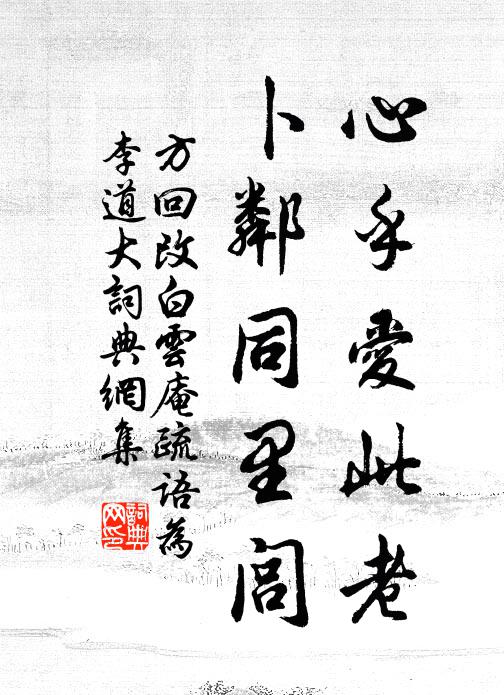 心乎愛此老
卜鄰同里閭
方回改白雲庵疏語為
李道大詞典網集
詞典
网印